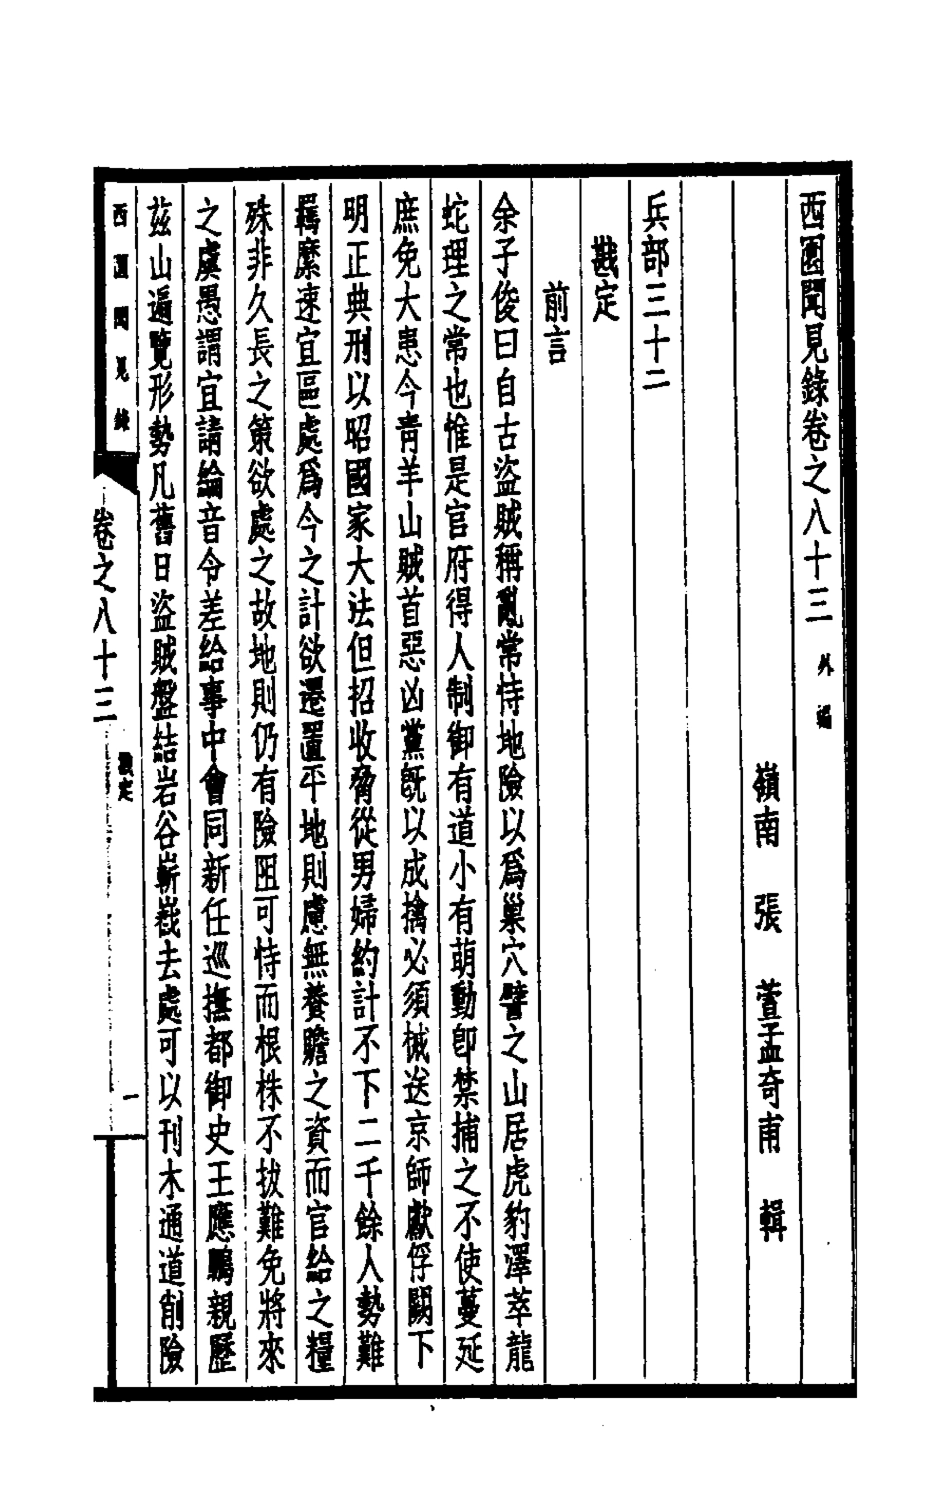 西園聞見錄卷之八十三 外編
嶺南 張 萱孟奇甫 輯
兵部三十二
戡定
前言
余子俊曰自古盜賊稱亂常恃地險以爲巢穴譬之山居虎豹澤萃龍
蛇理之常也惟是官府得人制御有道小有萌動卽禁捕之不使蔓延
庶免大患今靑羊山賊首惡凶黨旣以成擒必須械送京師獻俘闕下
明正典刑以昭國家大法但招收脅從男婦約計不下二千餘人勢難
羈縻速宜區處爲今之計欲還置平地則慮無養贍之資而官給之糧
殊非久長之策欲處之故地則仍有險阻可恃而根株不拔難免將來
之虞愚謂宜請綸音令差給事中會同新任巡撫都御史王應鵬親歷
茲山遍覽形勢凡舊日盜賊盤結岩谷嶄巀去處可以刊木通道削險
西園聞見錄
卷之八十三
戡定
一